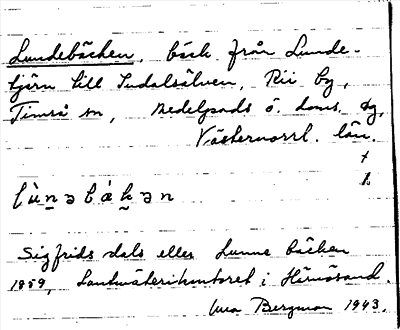 Lundebäcken, bäck från Lunde-
tjärn till Indalsälven, Rii by,
Timrå sn, Medelpads ö. doms. dg,
Västernorrl. län.
Sigfrids dals eller Lunne bäcken
1859, Lantmäterikontoret i Härnösand.
Bergman 1943.